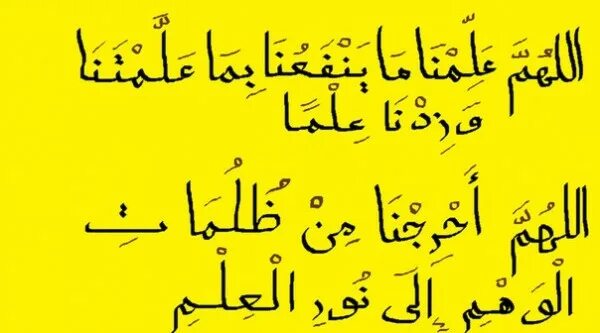 اللهُمَّ عَلِّمْنَا مَا يَنْفَعُنَا بِمَا عَلَّمْتَنَا
وَزِدْنَا عِلْمًا
اللهُمَّ أَحْرِجْنَا مِنْ ظُلُمَاتِ
الْوَهْمِ إِلَى نُورِ الْعِلْمِ